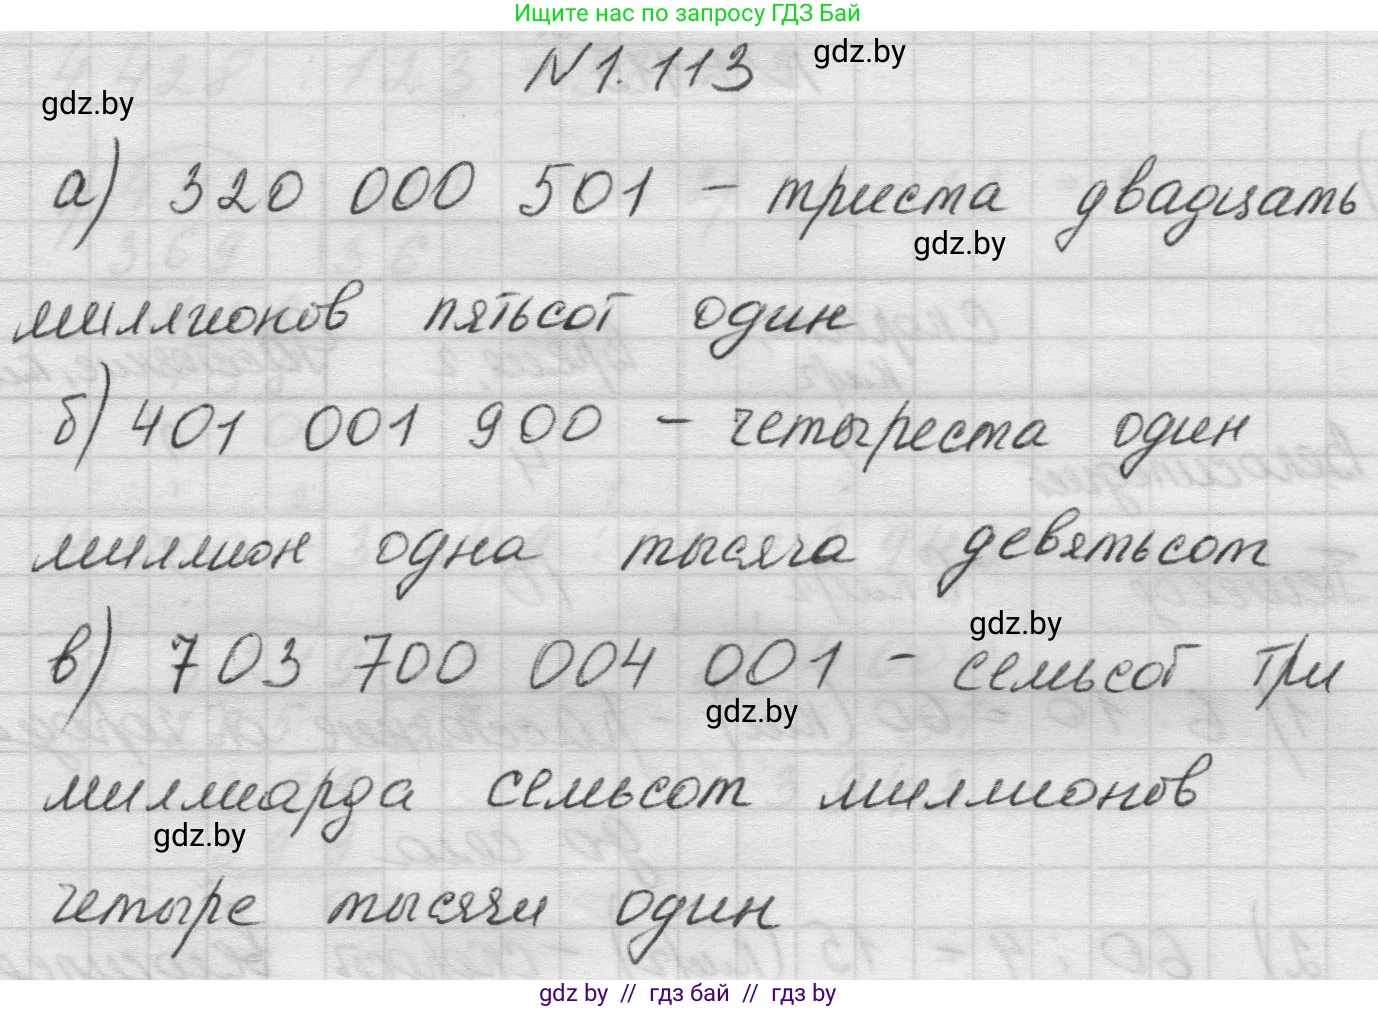 Ищите нас по запросу ГДЗ Бай
N 1.113
gdz.by
gdz.by
а) 320 000 501 – триста двадцать
gdz.by
миллионов пятьсот один
б) 401 001 900 – четыреста один
миллион одна тысяча девятьсот
gdz.by
в) 703 700 004 001 – семьсот три
gdz.by
миллиарда семьсот миллионов
gdz.by
четыре тысячи один
gdz by // гдз бай // гдз by